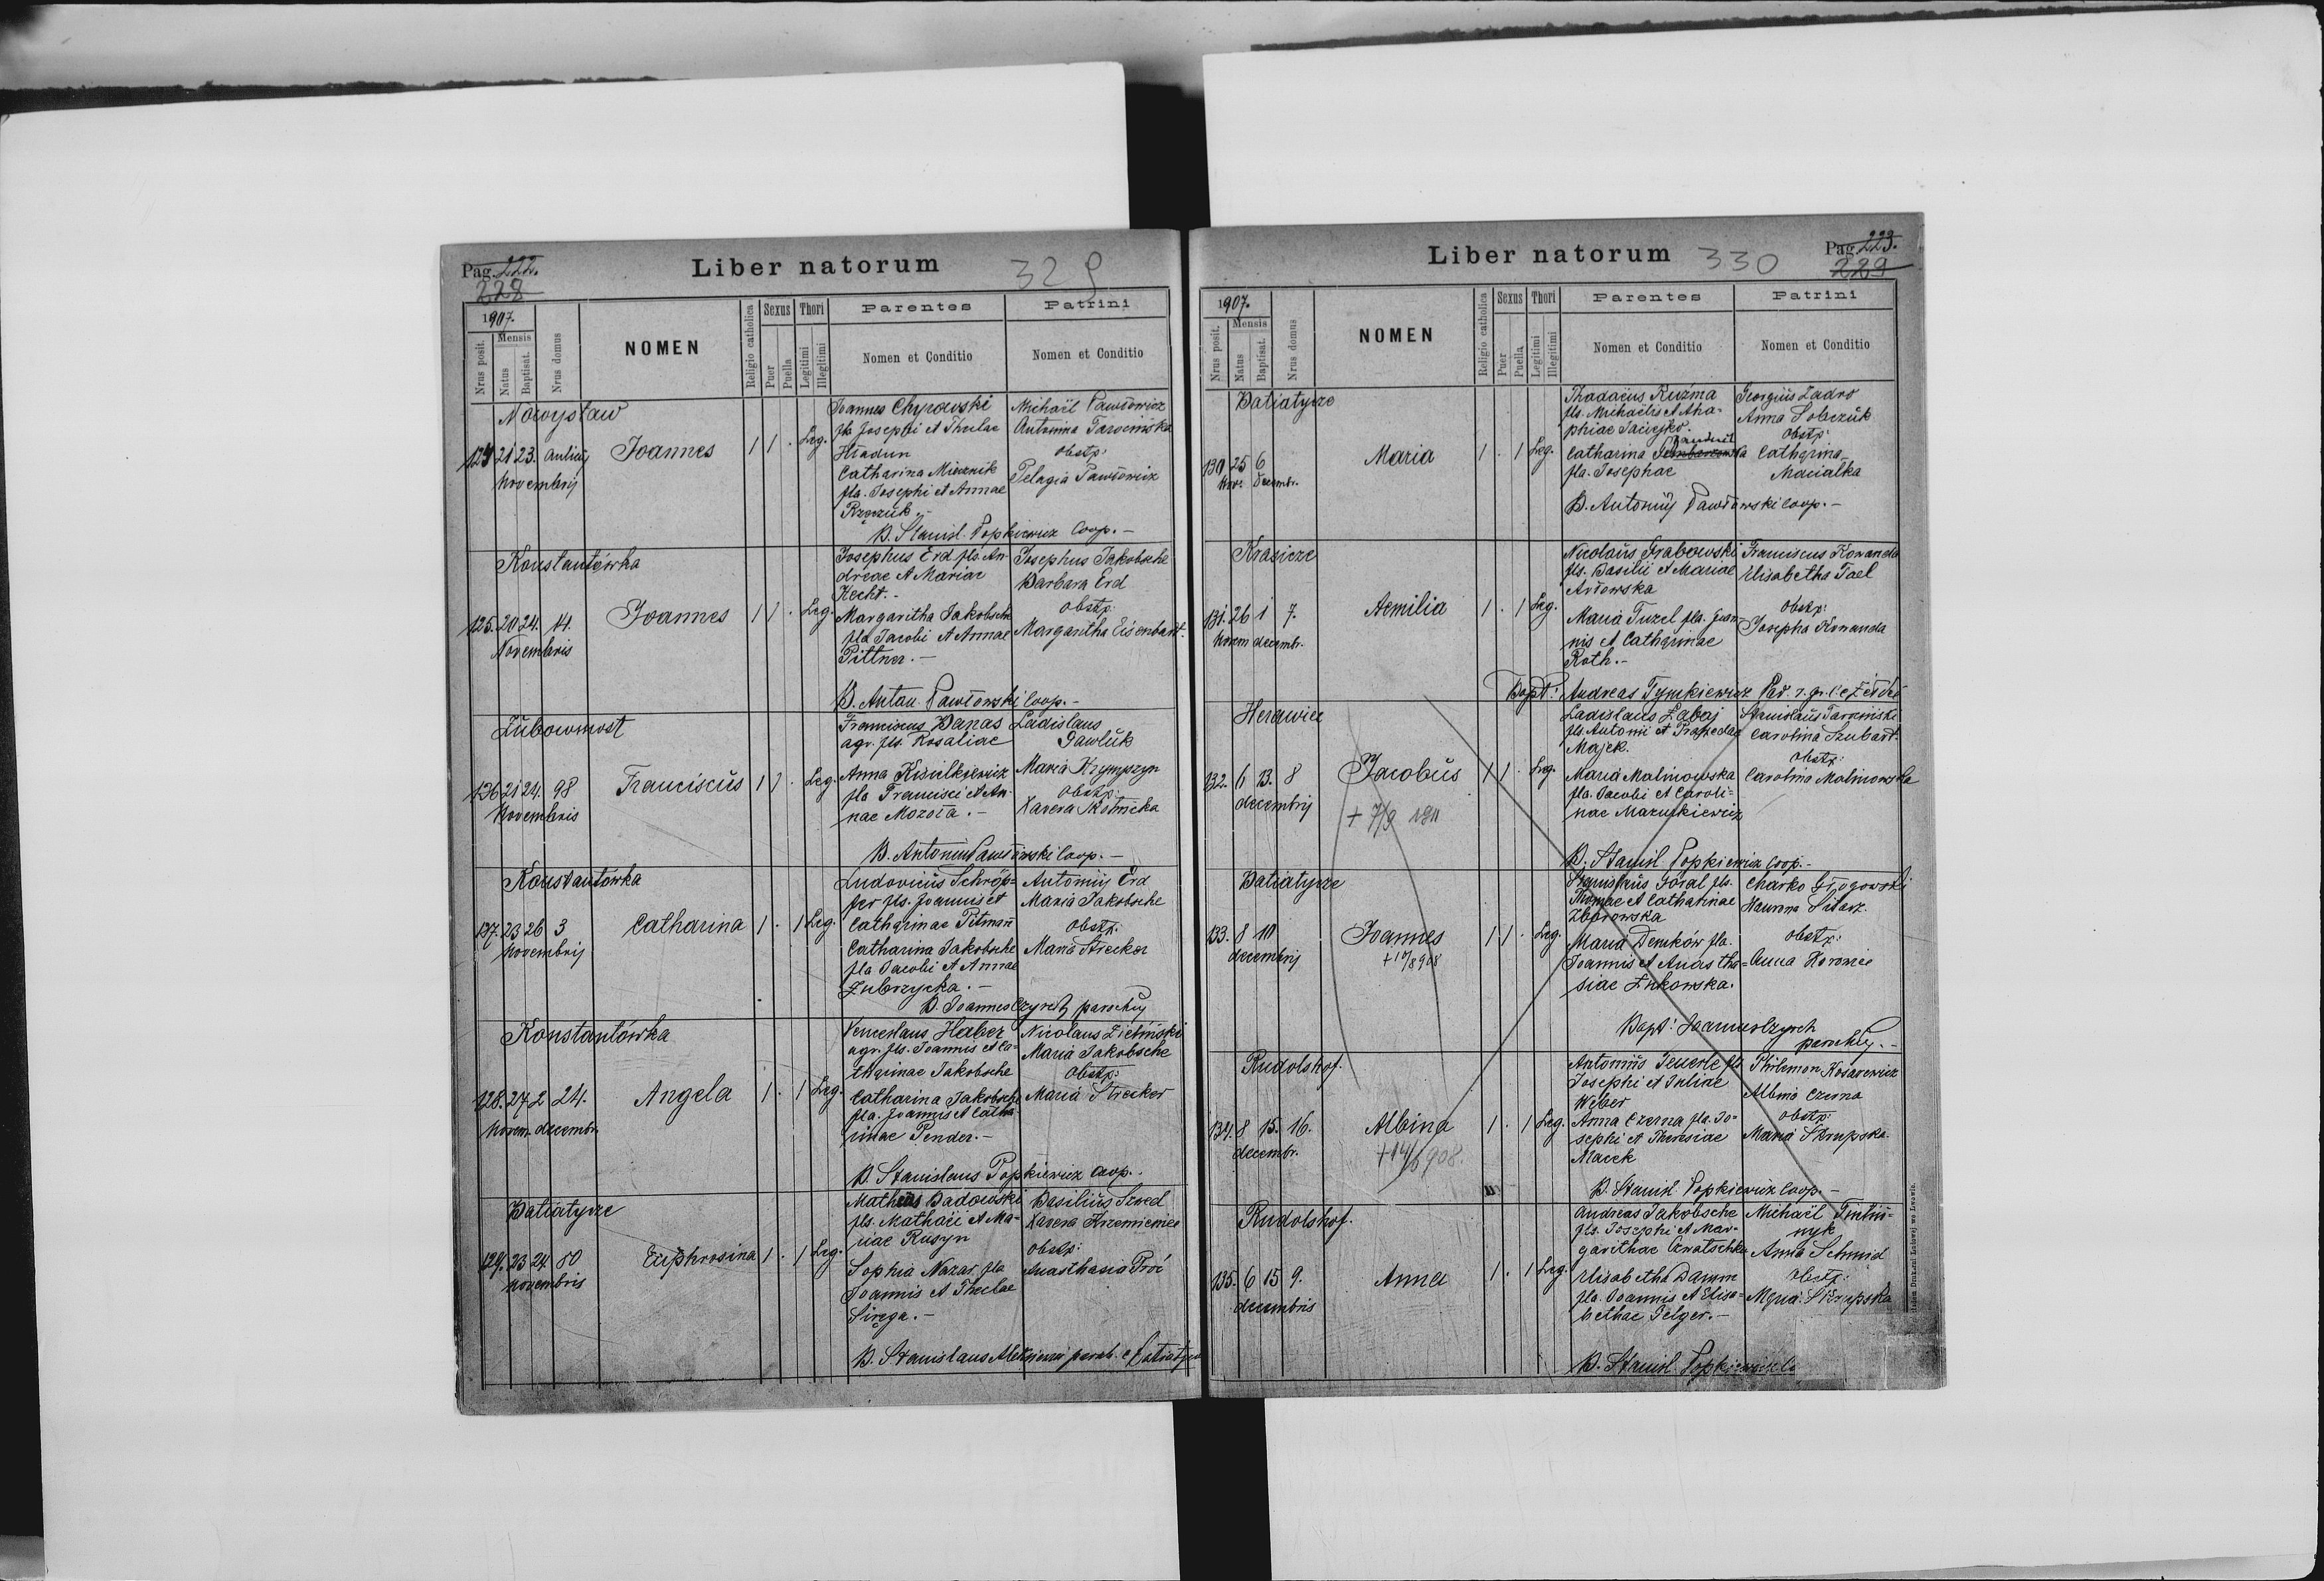 Pag. 222.
228
Liber natorum
329
1907.
Nrus posit.
Mensis
Natus
Baptisat.
Nrus domus
NOMEN
Religio catholica
Sexus
Puer
Puella
Thori
Legitimi
Illegitimi
Parentes
Nomen et Conditio
Patrini
Nomen et Conditio
Nowystaw
124 21 23.
Novembrij
Joannes
1 1 . Leg.
Joannes Chyrowski
fls Josephi et Theclae
Hładun
Catharina Miecznik
fla. Josephi et Annae
Rzączuk.-
Michaël Pawłowicz
Antonina Taroemska
obstp:
Pelagia Pawłowicz
B. Stanisl. Popkiewicz Coop.-
Konstantówka
125. 20 24. 14.
Novembris
Joannes
1 1 . Leg.
Josephus Erd fls. An-
dreae et Mariae
Hecht.-
Margaritha Jakobsche
fla Jacobi et Annae
Pittner.-
Josephus Jakobsche
Barbara Erd
obstp:
Margaritha Eisenbart.
B. Anton Pawłowski Coop.-
Żubowmost
126 21 24. 98
Novembris
Franciscus
1 1 . Leg.
Franciscus Banas
agr. fls. Rosaliae
Anna Kisielkiewicz
fla Francisci et An-
nae Mozoła.-
Ladislaus
Pawluk
Maria Krympzyn
obstp:
Xavera Skotnicka
B. Antonius Pawłowski Coop.-
Konstantówka
127. 23 26 3
Novembrij
Catharina
1 . 1 Leg.
Ludovicus Schröp-
fer fls. Joannis et
Catharinae Pitmann
Catharina Jakobsche
fla Jacobi et Annae
Zubrzycka.-
Antonij Erd
Maria Jakobsche
obstp:
Maria Strecker
B. Joannes Czyrek parochij
Konstantówka
128. 27 2 24.
Novem. decembr.
Angela
1 . 1 Leg.
Venceslaus Haber
agr. fls. Joannis et Ca-
tharinae Jakobsche
Catharina Jakobsche
fla. Joannis et Catha-
rinae Pender.-
Nicolaus Zieliński
Maria Jakobsche
Obstp:
Maria Strecker
B. Stanislaus Popkiewicz Coop.
Batiatycze
129. 23 24 80
Novembris
Euphrosina
1 . 1 Leg.
Matheus Badowski
fls. Mathaei et Ma-
riae Rusyn
Sophia Nazar fla
Joannis et Theclae
Sirega.-
Basilius Szwed
Xavera Krzemieniec
obstp:
Anasthasia Proć
B. Stanislaus paroh. e Batiatycze
Liber natorum
330
Pag. 223.
229
1907.
Nrus posit.
Mensis
Natus
Baptisat.
Nrus domus
NOMEN
Religio catholica
Sexus
Puer
Puella
Thori
Legitimi
Illegitimi
Parentes
Nomen et Conditio
Patrini
Nomen et Conditio
Batiatycze
130 25 6
Nov. Decembr.
Maria
1 . 1 Leg.
Thadaeus Kuźma
fls. Michaelis et Aga-
phiae Jaciejko.
Catharina
fla. Josephae
Georgius Zadro
Anna Sobczuk
Obstp:
Catharina
Macialka
B. Antonij Pawłowski Coop.-
Krasicze
131. 26 1 7.
Novem decembr.
Aemilia
1 . 1 Leg.
Nicolaus Grabowski
fls. Basilii et Mariae
Maria Tuzel fla. Joan-
nis et Catharinae
Roth.-
Franciscus Kowanda
Elisabetha Tael
Obstp:
Josepha Kowanda
Bapt: Andreas Tymkiewicz
Herawiec
132. 6 13. 8
decembrij
Jacobus
+ 7/9 1911
1 1 . Leg.
Ladislaus Zabaj
fls. Antonii et Praxedae
Majek.
Maria Malinowska
fla. Jacobi et Caroli-
nae Mazurkiewicz
Stanislaus Taroemski
Carolina Szubart
Obstp:
Carolina Malinowska
B. Stanisl Popkiewicz Coop.-
Batiatycze
133. 8 10
decembrij
Joannes
+ 10/8 908
1 1 . Leg.
Stanislaus Góral fls.
Thomae et Catharinae
Zborowska
Maria Demków fla.
Joannis et Anastha-
siae Żukowska.
Charko Głogowski
Hawrona Sitarz.
obstp:
Anna Koroniec
Bapt: Joannes Czyrek
parochij.-
Rudolshof.
134. 8 15. 16.
decembr.
Albina
+ 14/6 908.
1 . 1 Leg.
Antonius Teuerle fls
Josephi et Juliae
Weber
Anna Czerna fla. Jo-
sephi et Theresiae
Macek
Philemon Kosarewicz
Albina Czerna
obstp:
Maria Skrupska.
B. Stanisl. Popkiewicz Coop.-
Rudolshof.
135. 6 15 9.
decembris
Anna
1 . 1 Leg.
Andreas Jakobsche
fls. Josephi et Mar-
garithae Kwatschka
Elisabetha Damm
fla. Joannis et Elisa-
bethae Pelger.-
Michaël
nyk
Anna Schmid
Obstp:
Maria Skrupska
B. Stanisl Popkiewicz Co